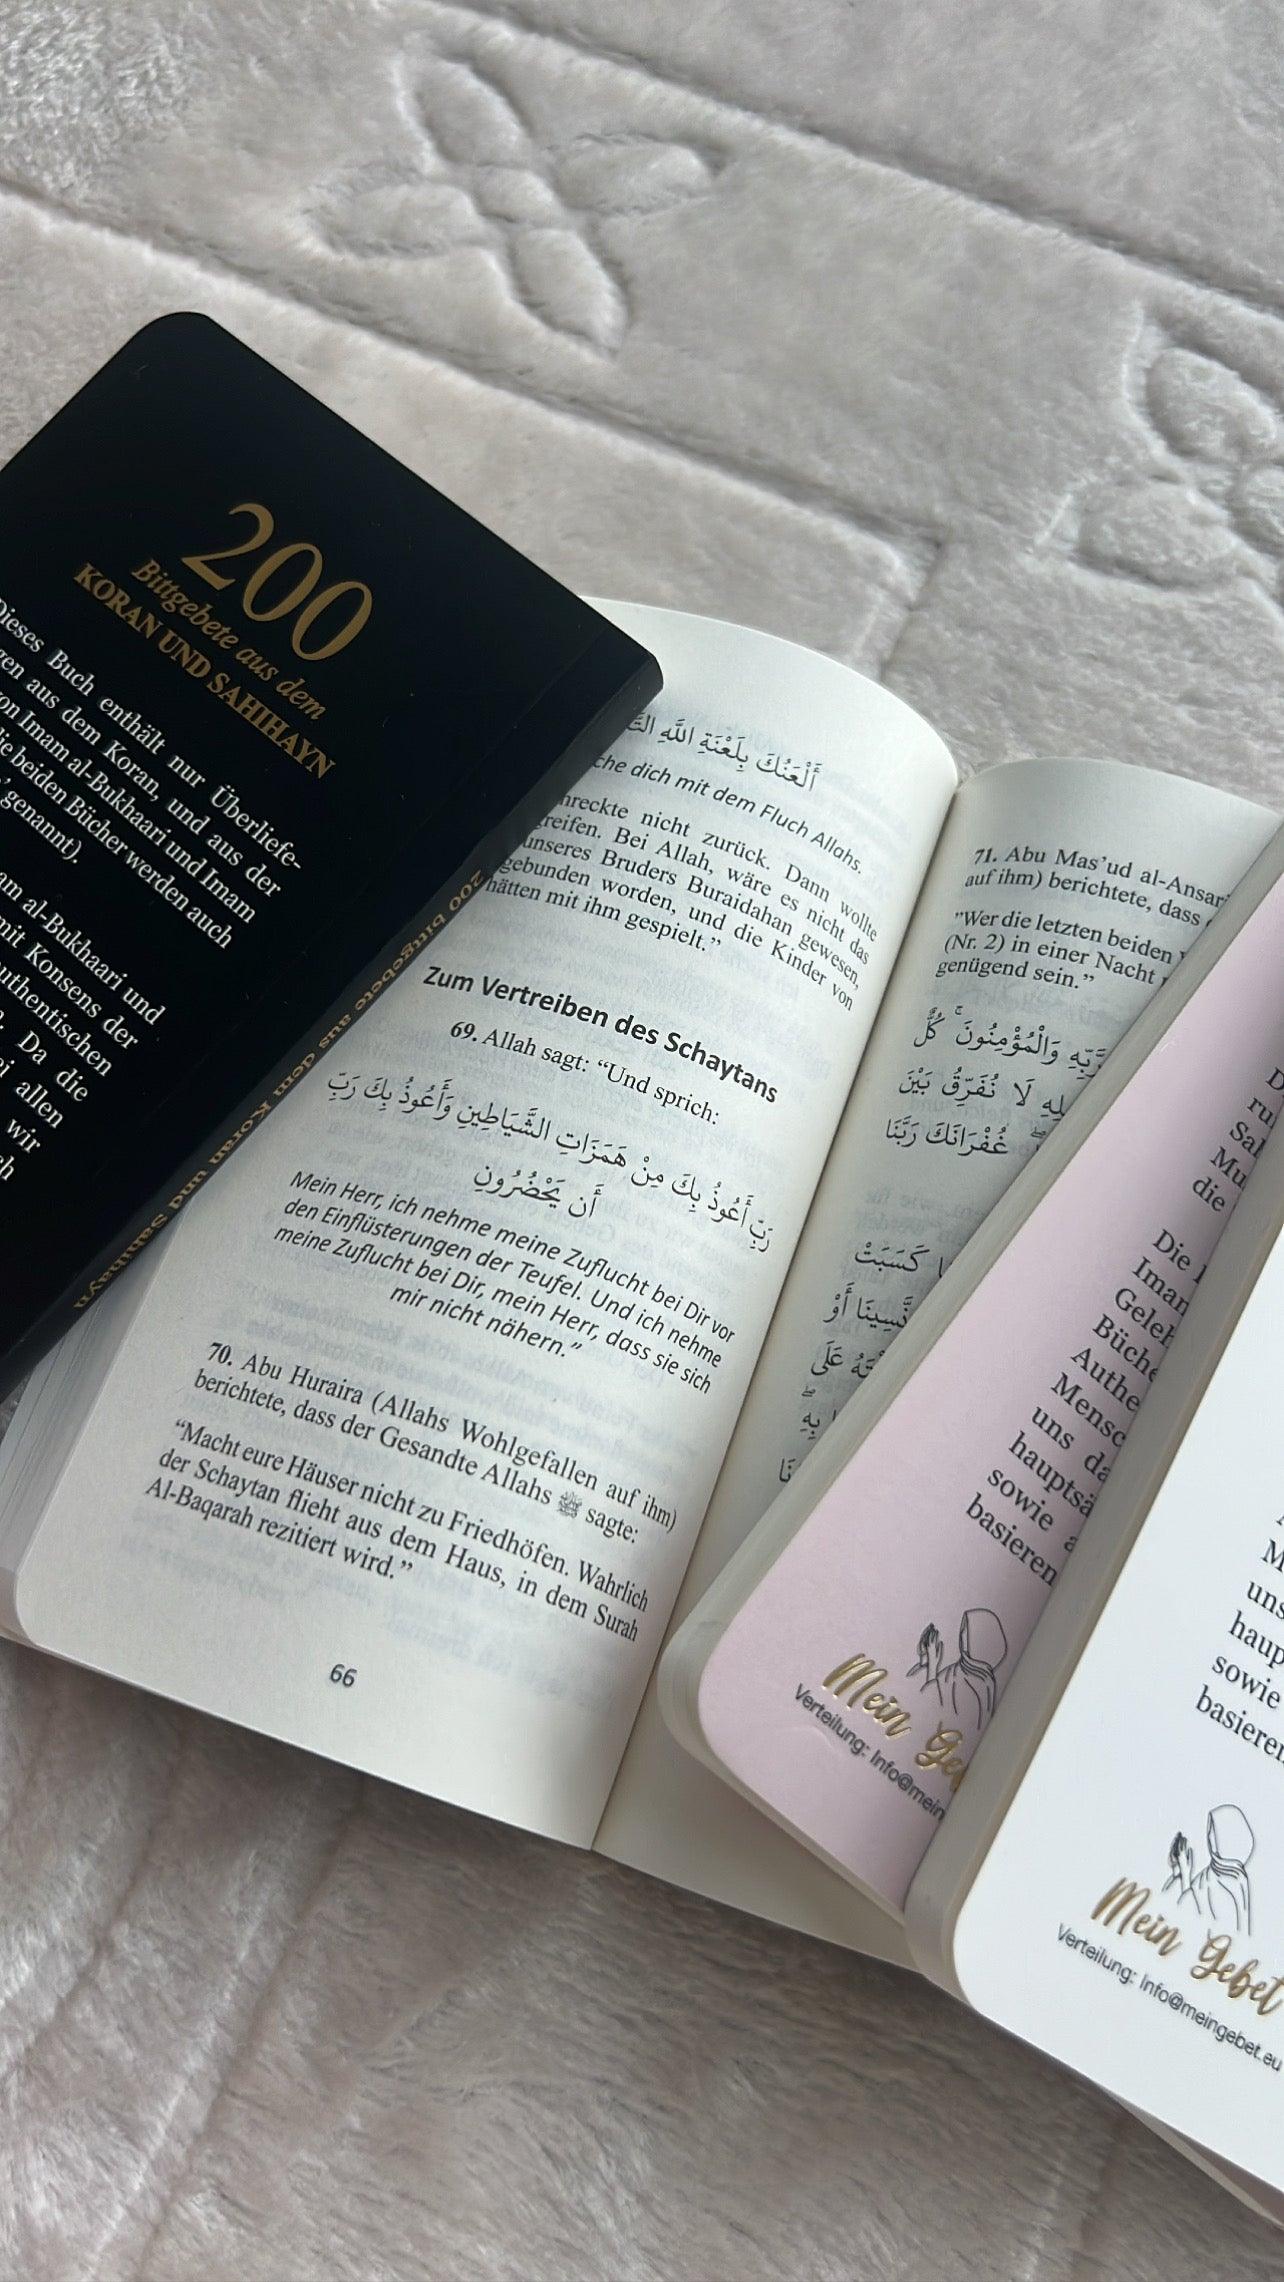 200
Bittgebete aus dem
KORAN UND SAHIHAYN
Dieses Buch enthält nur Überliefe-
gen aus dem Koran, und aus der
von Imam al-Bukhaari und Imam
die beiden Bücher werden auch
genannt).
am al-Bukhaari und
mit Konsens der
authentischen
Da die
ei allen
wir
ch
200 bittgebete aus dem Koran und Sahihayn
أَلْعَنُكَ بِلَعْنَةِ اللَّهِ
che dich mit dem Fluch Allahs.
hreckte nicht zurück. Dann wollte
greifen. Bei Allah, wäre es nicht das
unseres Bruders Buraidahan gewesen,
gebunden worden, und die Kinder von
hätten mit ihm gespielt.”
Zum Vertreiben des Schaytans
69. Allah sagt: “Und sprich:
رَبِّ أَعُوذُ بِكَ مِنْ هَمَزَاتِ الشَّيَاطِينِ وَأَعُوذُ بِكَ رَبِّ
أَن يَحْضُرُونِ
Mein Herr, ich nehme meine Zuflucht bei Dir vor
den Einflüsterungen der Teufel. Und ich nehme
meine Zuflucht bei Dir, mein Herr, dass sie sich
mir nicht nähern.”
70. Abu Huraira (Allahs Wohlgefallen auf ihm)
berichtete, dass der Gesandte Allahs ﷺ sagte:
“Macht eure Häuser nicht zu Friedhöfen. Wahrlich
der Schaytan flieht aus dem Haus, in dem Surah
Al-Baqarah rezitiert wird.”
66
71. Abu Mas’ud al-Ansari
auf ihm) berichtete, dass
”Wer die letzten beiden
(Nr. 2) in einer Nacht
genügend sein.”
رَّبِّهِ وَالْمُؤْمِنُونَ ۚ كُلٌّ
لَا نُفَرِّقُ بَيْنَ
غُفْرَانَكَ رَبَّنَا
كَسَبَتْ
نَّسِينَا أَوْ
عَلَى
بِهِ
D
ru
Sal
Mu
die
Die
Imam
Geleh
Büche
Authe
Mensc
uns da
hauptsä
sowie a
basieren
Mein Ge
Verteilung: Info@mein
M
uns
haup
sowie
basieren
Mein Gebet
Verteilung: Info@meingebet.eu